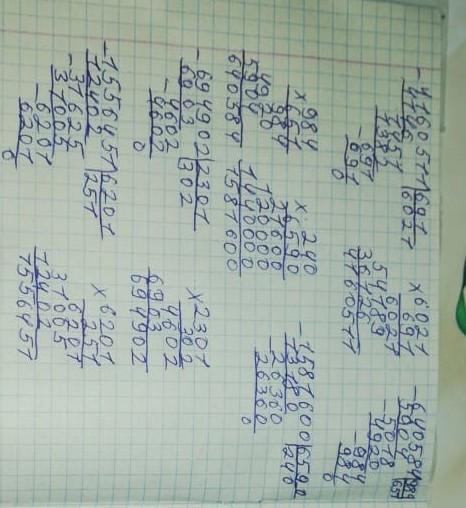 -4160511|691
4146 6021
-1451
1382
-691
691
0
×6021
691
6021
54189
36126
4160511
-640584|984
5904 651
-5018
4920
-984
984
0
×984
651
984
4920
5904
640584
×240
6590
21600
120000
1440000
1581600
-1581600|6590
13180 240
-26360
26360
0
-694902|2301
6903 302
-4602
4602
0
×2301
302
4602
6903
694902
-1556451|6201
12402 251
-31625
31005
-6201
6201
0
×6201
251
6201
31005
12402
1556451